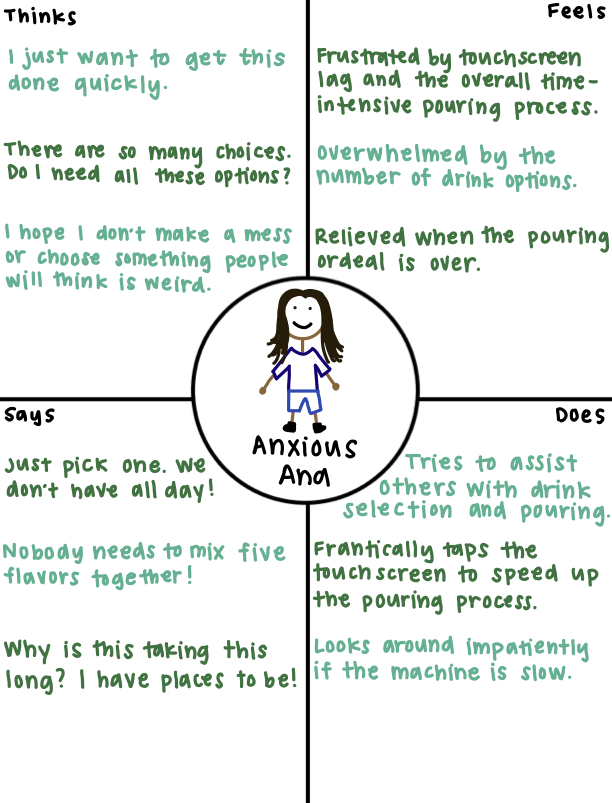 Thinks
I just want to get this
done quickly.
There are so many choices.
Do I need all these options?
I hope I don't make a mess
or choose something people
will think is weird.
Feels
Frustrated by touchscreen
lag and the overall time-
intensive pouring process.
Overwhelmed by the
number of drink options.
Relieved when the pouring
ordeal is over.
Anxious
Ana
Says
Just pick one. We
don't have all day!
Nobody needs to mix five
flavors together!
Why is this taking this
long? I have places to be!
Does
Tries to assist
others with drink
selection and pouring.
Frantically taps the
touchscreen to speed up
the pouring process.
Looks around impatiently
if the machine is slow.